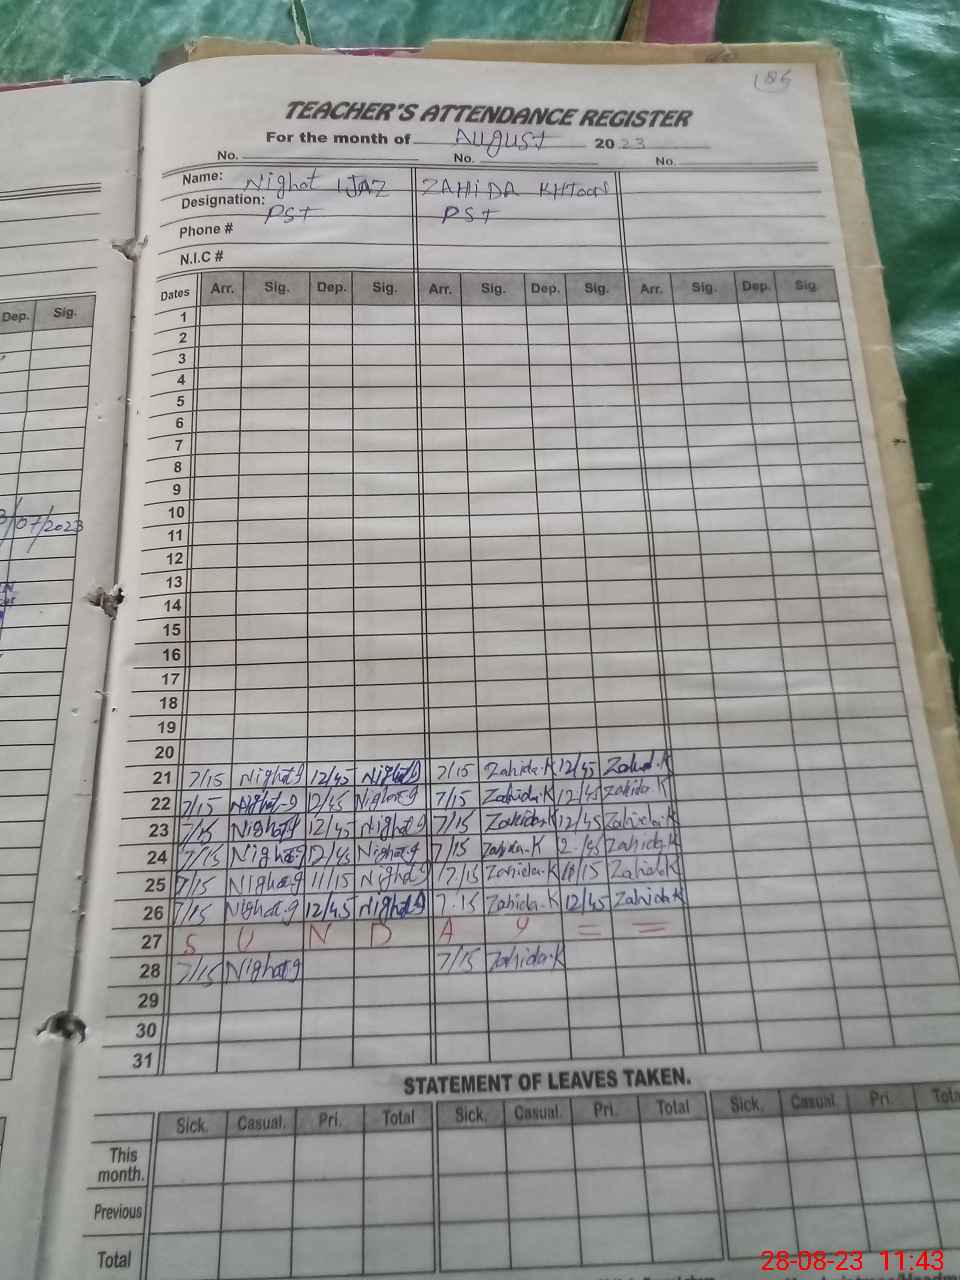 185
TEACHER'S ATTENDANCE REGISTER
For the month of August 2023
No. No. No.
Name: Nighat IJAZ ZAHIDA
Designation: PST PST
Phone #
N.I.C #
Dep. Sig.
Dates Arr. Sig. Dep. Sig. Arr. Sig. Dep. Sig. Arr. Sig. Dep. Sig.
1
2
3
4
5
6
7
8
9
10
/07/2023
11
12
13
14
15
16
17
18
19
20
21 7/15 Nighat.g 12/45 Nighat.g 7/15 Zahida.K 12/45 Zahida.K
22 7/15 Nighat.g 12/45 Nighat.g 7/15 Zahida.K 12/45 Zahida.K
23 7/15 Nighat.g 12/45 Nighat.g 7/15 Zahida.K 12/45 Zahida.K
24 7/15 Nighat.g 12/45 Nighat.g 7/15 Zahida.K 12/45 Zahida.K
25 7/15 Nighat.g 11/15 Nighat.g 7/15 Zahida.K 11/15 Zahida.K
26 7/15 Nighat.g 12/45 Nighat.g 7.15 Zahida.K 12/45 Zahida.K
27 S U N D A Y = =
28 7/15 Nighat.g 7/15 Zahida.K
29
30
31
STATEMENT OF LEAVES TAKEN.
Sick. Casual. Pri. Total Sick. Casual. Pri. Total Sick. Casual Pri. Tota
This month.
Previous
Total
28-08-23 11:43